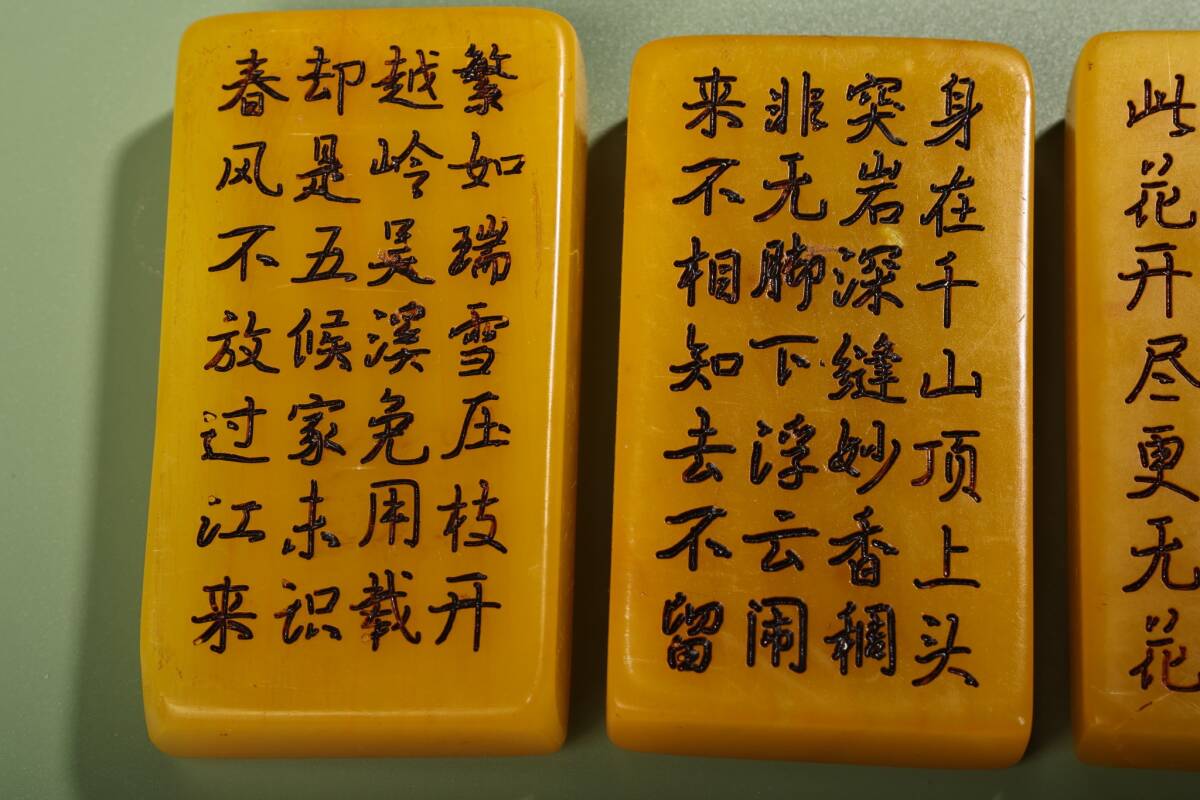 繁如瑞雪压枝开
越岭吴溪免用载
却是五候家未识
春风不放过江来
身在千山顶上头
突岩深缝妙香稠
非无脚下浮云闹
来不相知去不留
此花开尽更无花